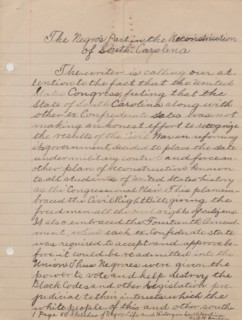 The Negro's Part in the Reconstruction
of South Carolina
The writer is calling our at
tention to the fact that the United
States Congress, futing that the
State of South Carolina along with
other ex Confederate States was not
making an honest effort to recognize
the results of the War in reforming
its government decided to place the state
under military control and force an
other plan of Reconstruction known
to all students of United States history
as the Congressional Plan. This plan em
braced the Civil Rights Bill, giving the
freedmen all the civil rights of citizens.
It also embraced the Fourteenth Amend
ment, which each ex-Confederate State
was required to accept and approve be
fore it could be readmitted into the
Union. Thus Negroes were given the
power to vote and help destroy the
Black Codes and other legislation pre
judicial to their interests which the
white people of this and other south
1 Page 88 Sketches of Negro Life and History in South Carolina